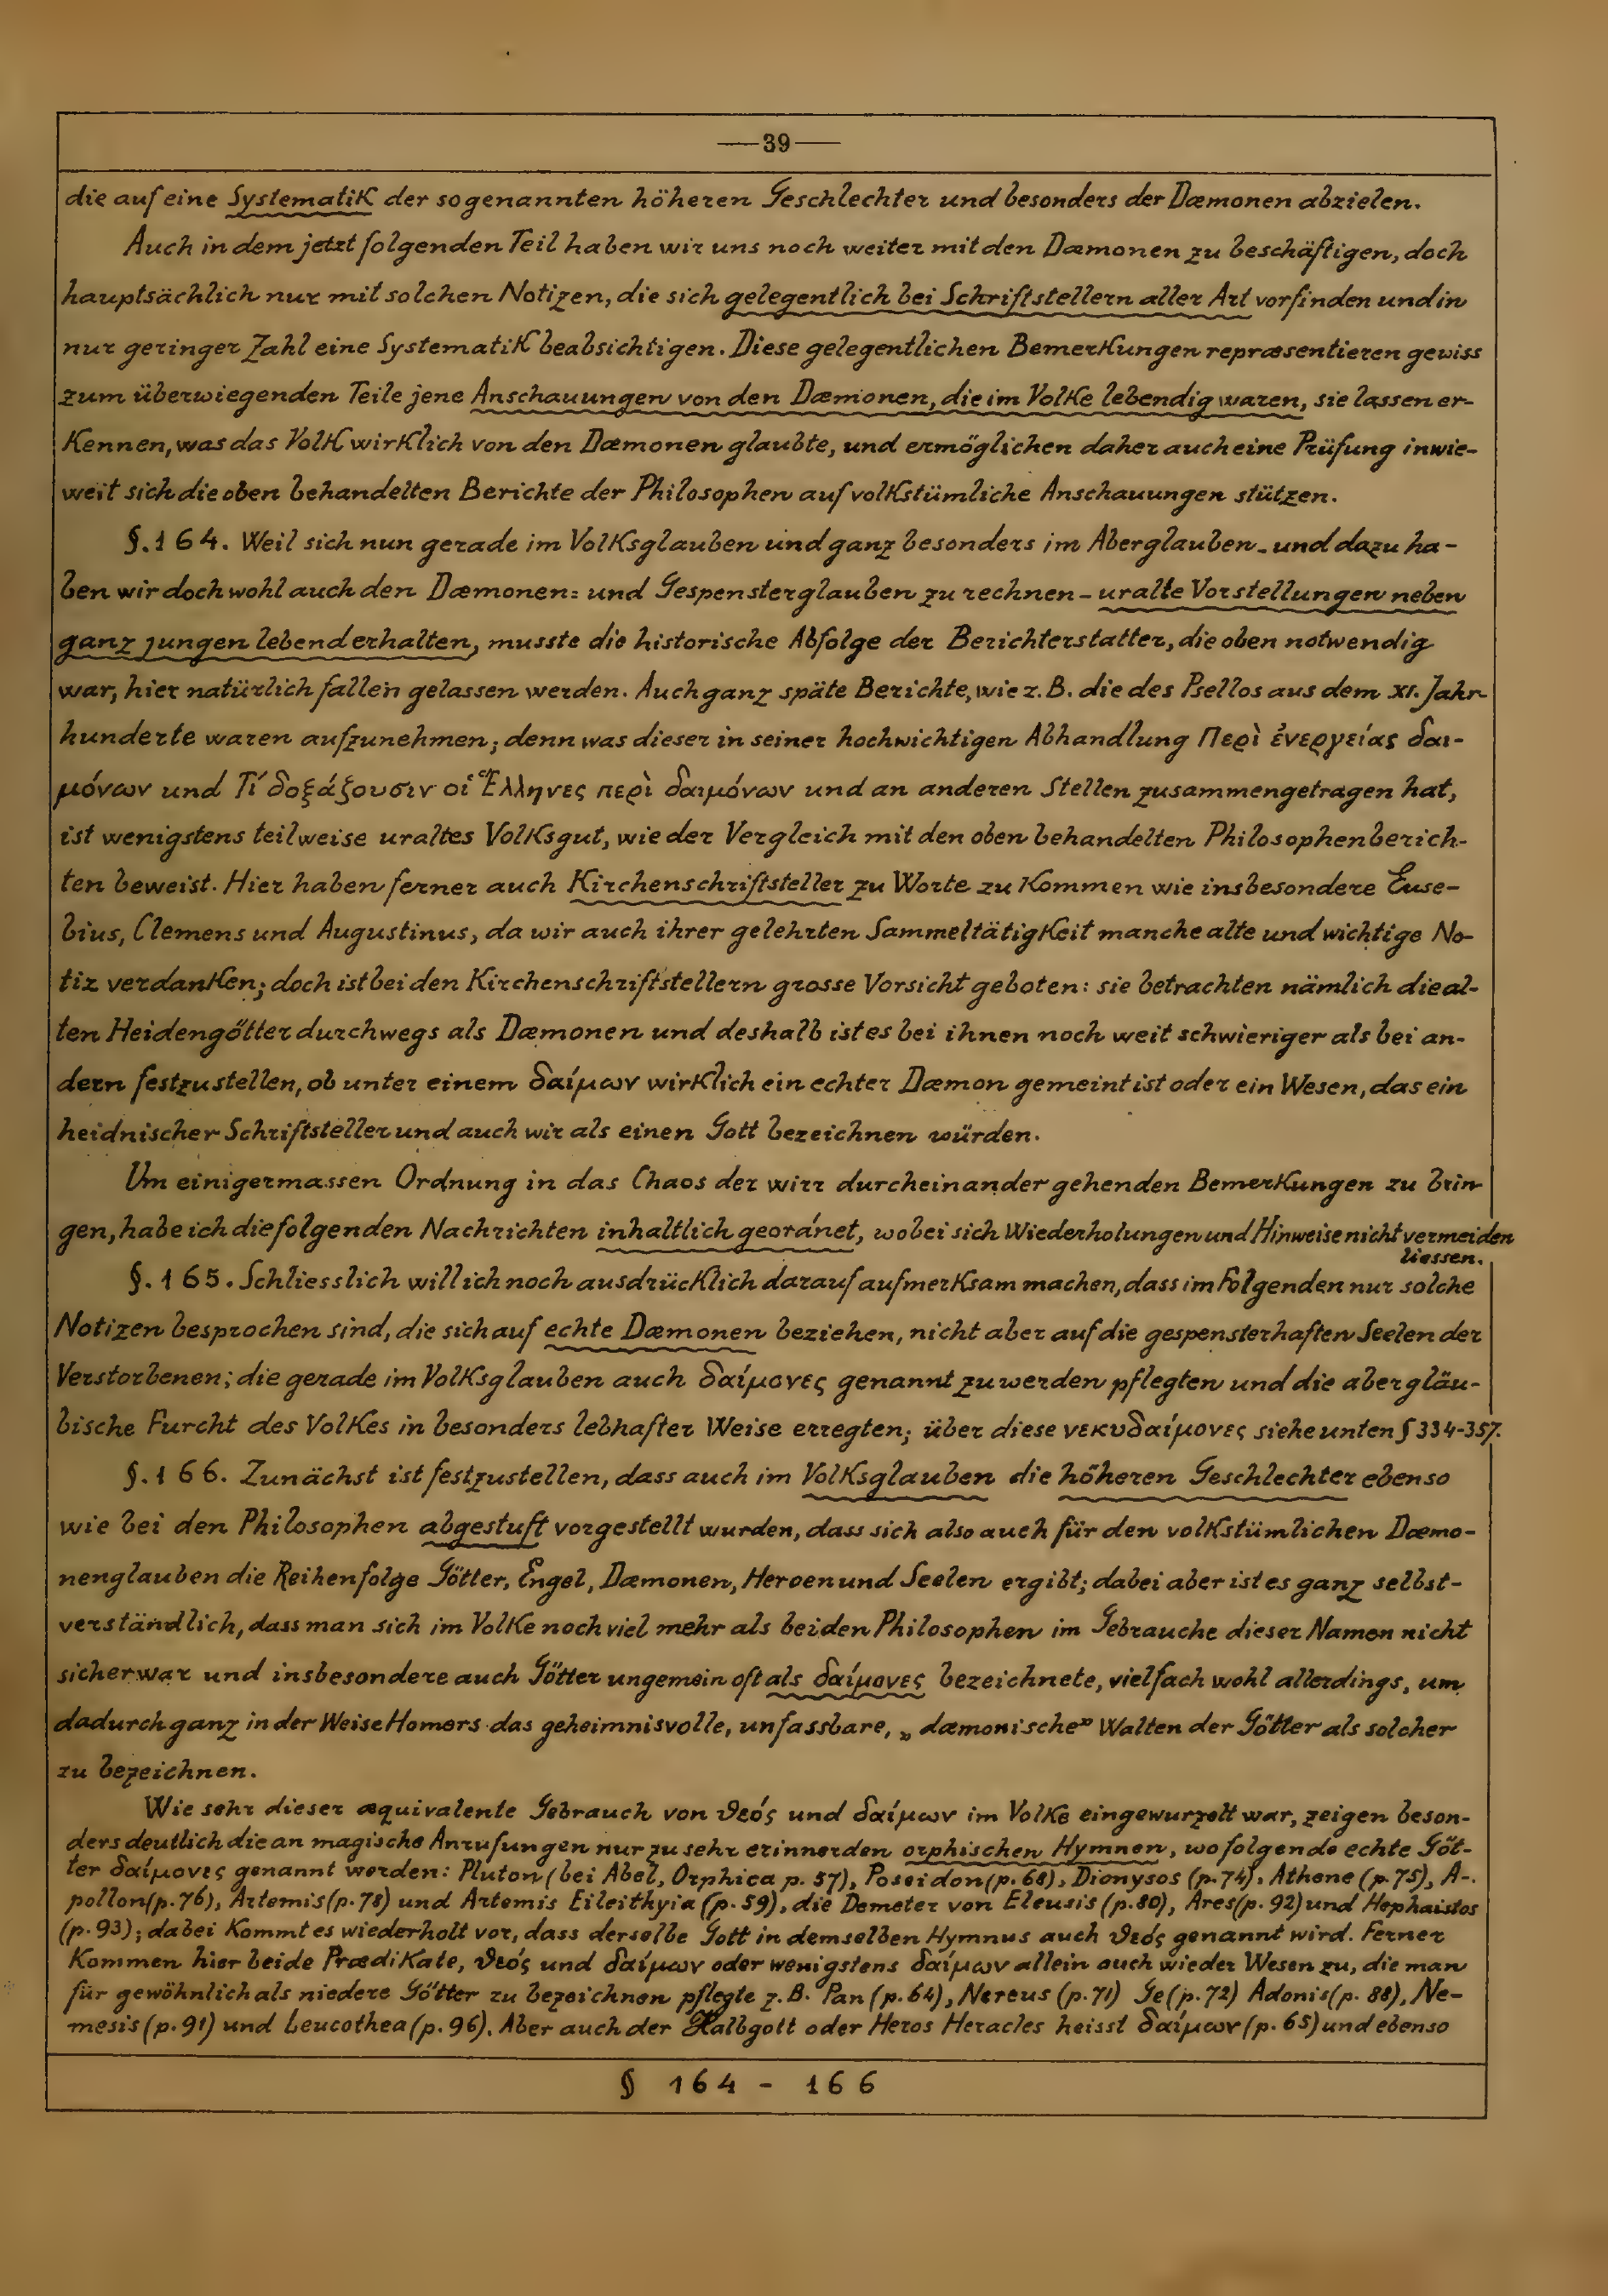 —39—
die auf eine Systematik der sogenannten höheren Geschlechter und besonders der Dæmonen abzielen.
Auch in dem jetzt folgenden Teil haben wir uns noch weiter mit den Dæmonen zu beschäftigen, doch
hauptsächlich nur mit solchen Notizen, die sich gelegentlich bei Schriftstellern aller Art vorfinden und in
nur geringer Zahl eine Systematik beabsichtigen. Diese gelegentlichen Bemerkungen repræsentieren gewiss
zum überwiegenden Teile jene Anschauungen von den Dæmonen, die im Volke lebendig waren, sie lassen er-
kennen, was das Volk wirklich von den Dæmonen glaubte, und ermöglichen daher auch eine Prüfung inwie-
weit sich die oben behandelten Berichte der Philosophen auf volkstümliche Anschauungen stützen.
§. 164. Weil sich nun gerade im Volksglauben und ganz besonders im Aberglauben - und dazu ha-
ben wir doch wohl auch den Dæmonen= und Gespensterglauben zu rechnen - uralte Vorstellungen neben
ganz jungen lebend erhalten, musste die historische Abfolge der Berichterstatter, die oben notwendig
war, hier natürlich fallen gelassen werden. Auch ganz späte Berichte, wie z. B. die des Psellos aus dem XI. Jahr-
hunderte waren aufzunehmen; denn was dieser in seiner hochwichtigen Abhandlung Περὶ ἐνεργείας δαι-
μόνων und Τί δοξάζουσιν οἱ Ἕλληνες περὶ δαιμόνων und an anderen Stellen zusammengetragen hat,
ist wenigstens teilweise uraltes Volksgut, wie der Vergleich mit den oben behandelten Philosophenberich-
ten beweist. Hier haben ferner auch Kirchenschriftsteller zu Worte zu kommen wie insbesondere Euse-
bius, Clemens und Augustinus, da wir auch ihrer gelehrten Sammeltätigkeit manche alte und wichtige No-
tiz verdanken; doch ist bei den Kirchenschriftstellern grosse Vorsicht geboten: sie betrachten nämlich die al-
ten Heidengötter durchwegs als Dæmonen und deshalb ist es bei ihnen noch weit schwieriger als bei an-
dern festzustellen, ob unter einem δαίμων wirklich ein echter Dæmon gemeint ist oder ein Wesen, das ein
heidnischer Schriftsteller und auch wir als einen Gott bezeichnen würden.
Um einigermassen Ordnung in das Chaos der wirr durcheinander gehenden Bemerkungen zu brin-
gen, habe ich die folgenden Nachrichten inhaltlich geordnet, wobei sich Wiederholungen und Hinweise nicht vermeiden
liessen.
§. 165. Schliesslich will ich noch ausdrücklich darauf aufmerksam machen, dass im Folgenden nur solche
Notizen besprochen sind, die sich auf echte Dæmonen beziehen, nicht aber auf die gespensterhaften Seelen der
Verstorbenen; die gerade im Volksglauben auch δαίμονες genannt zu werden pflegten und die abergläu-
bische Furcht des Volkes in besonders lebhafter Weise erregten; über diese νεκυδαίμονες siehe unten § 334-357.
§. 166. Zunächst ist festzustellen, dass auch im Volksglauben die höheren Geschlechter ebenso
wie bei den Philosophen abgestuft vorgestellt wurden, dass sich also auch für den volkstümlichen Dæmo-
nenglauben die Reihenfolge Götter, Engel, Dæmonen, Heroen und Seelen ergibt; dabei aber ist es ganz selbst-
verständlich, dass man sich im Volke noch viel mehr als bei den Philosophen im Gebrauche dieser Namen nicht
sicher war und insbesondere auch Götter ungemein oft als δαίμονες bezeichnete, vielfach wohl allerdings, um
dadurch ganz in der Weise Homers das geheimnisvolle, unfassbare, „dæmonische” Walten der Götter als solcher
zu bezeichnen.
Wie sehr dieser æquivalente Gebrauch von ϑεός und δαίμων im Volke eingewurzelt war, zeigen beson-
ders deutlich die an magische Anrufungen nur zu sehr erinnerden orphischen Hymnen, wo folgende echte Göt-
ter δαίμονες genannt werden: Pluton (bei Abel, Orphica p. 57), Poseidon (p. 68), Dionysos (p. 74), Athene (p. 75), A-
pollon (p. 76), Artemis (p. 78) und Artemis Eileithyia (p. 59), die Demeter von Eleusis (p. 80), Ares (p. 92) und Hephaistos
(p. 93); dabei kommt es wiederholt vor, dass derselbe Gott in demselben Hymnus auch ϑεός genannt wird. Ferner
kommen hier beide Prædikate, ϑεός und δαίμων oder wenigstens δαίμων allein auch wieder Wesen zu, die man
für gewöhnlich als niedere Götter zu bezeichnen pflegte z. B. Pan (p. 64), Nereus (p. 71) Ge (p. 72) Adonis (p. 88), Ne-
mesis (p. 91) und Leucothea (p. 96). Aber auch der Halbgott oder Heros Heracles heisst δαίμων (p. 65) und ebenso
§ 164 - 166